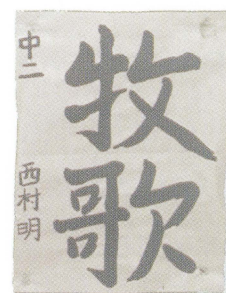 牧歌
中二 西村明